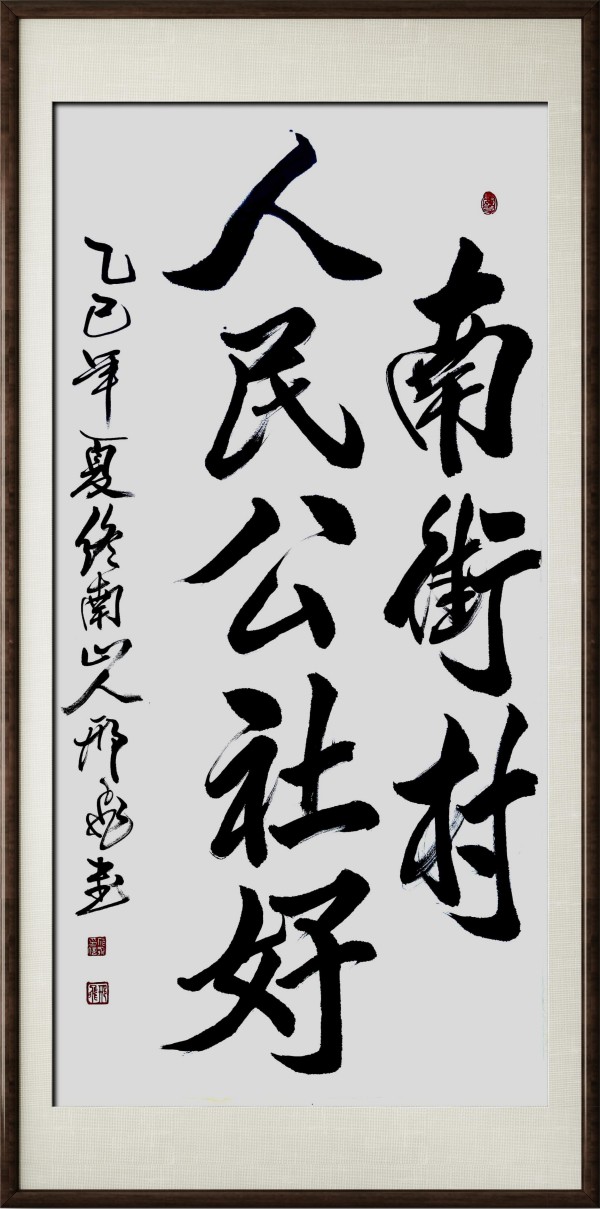 南街村
人民公社好
乙巳年夏终南山人邢書